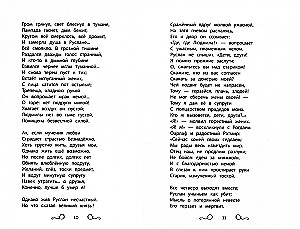 Гром грянул, свет блеснул в тумане,
Лампада гаснет, дым бежит,
Кругом всё смерклось, всё дрожит,
И замерла душа в Руслане...
Всё смолкло. В грозной тишине
Раздался дважды голос странный,
И кто-то в дымной глубине
Взвился чернее мглы туманной...
И снова терем пуст и тих;
Встаёт испуганный жених,
С лица катится пот остылый;
Трепеща, хладною рукой
Он вопрошает мрак немой...
О горе: нет подруги милой!
Хватает воздух он пустой;
Людмилы нет во тьме густой,
Похищена безвестной силой.
Ах, если мученик любви
Страдает страстью безнадёжно,
Хоть грустно жить, друзья мои,
Однако жить ещё возможно.
Но после долгих, долгих лет
Обнять влюблённую подругу,
Желаний, слёз, тоски предмет,
И вдруг минутную супругу
Навек утратить... о друзья,
Конечно, лучше б умер я!
Однако жив Руслан несчастный.
Но что сказал великий князь?
10
Сражённый вдруг молвой ужасной,
На зятя гневом распалясь,
Его и двор он созывает:
«Где, где Людмила?» — вопрошает
С ужасным, пламенным челом.
Руслан не слышит. «Дети, други!
Я помню прежние заслуги:
О, сжальтесь вы над стариком!
Скажите, кто из вас согласен
Скакать за дочерью моей?
Чей подвиг будет не напрасен,
Тому — терзайся, плачь, злодей!
Не мог сберечь жены своей! —
Тому я дам её в супруги
С полцарством прадедов моих.
Кто ж вызовется, дети, други?..»
«Я!» — молвил горестный жених.
«Я! я!» — воскликнули с Рогдаем
Фарлаф и радостный Ратмир. —
«Сейчас коней своих седлаем;
Мы рады весь изъездить мир.
Отец наш, не продлим разлуки;
Не бойся: едем за княжной».
И с благодарностью немой
В слезах к ним простирает руки
Старик, измученный тоской.
Все четверо выходят вместе;
Руслан уныньем как убит;
Мысль о потерянной невесте
Его терзает и мертвит.
11